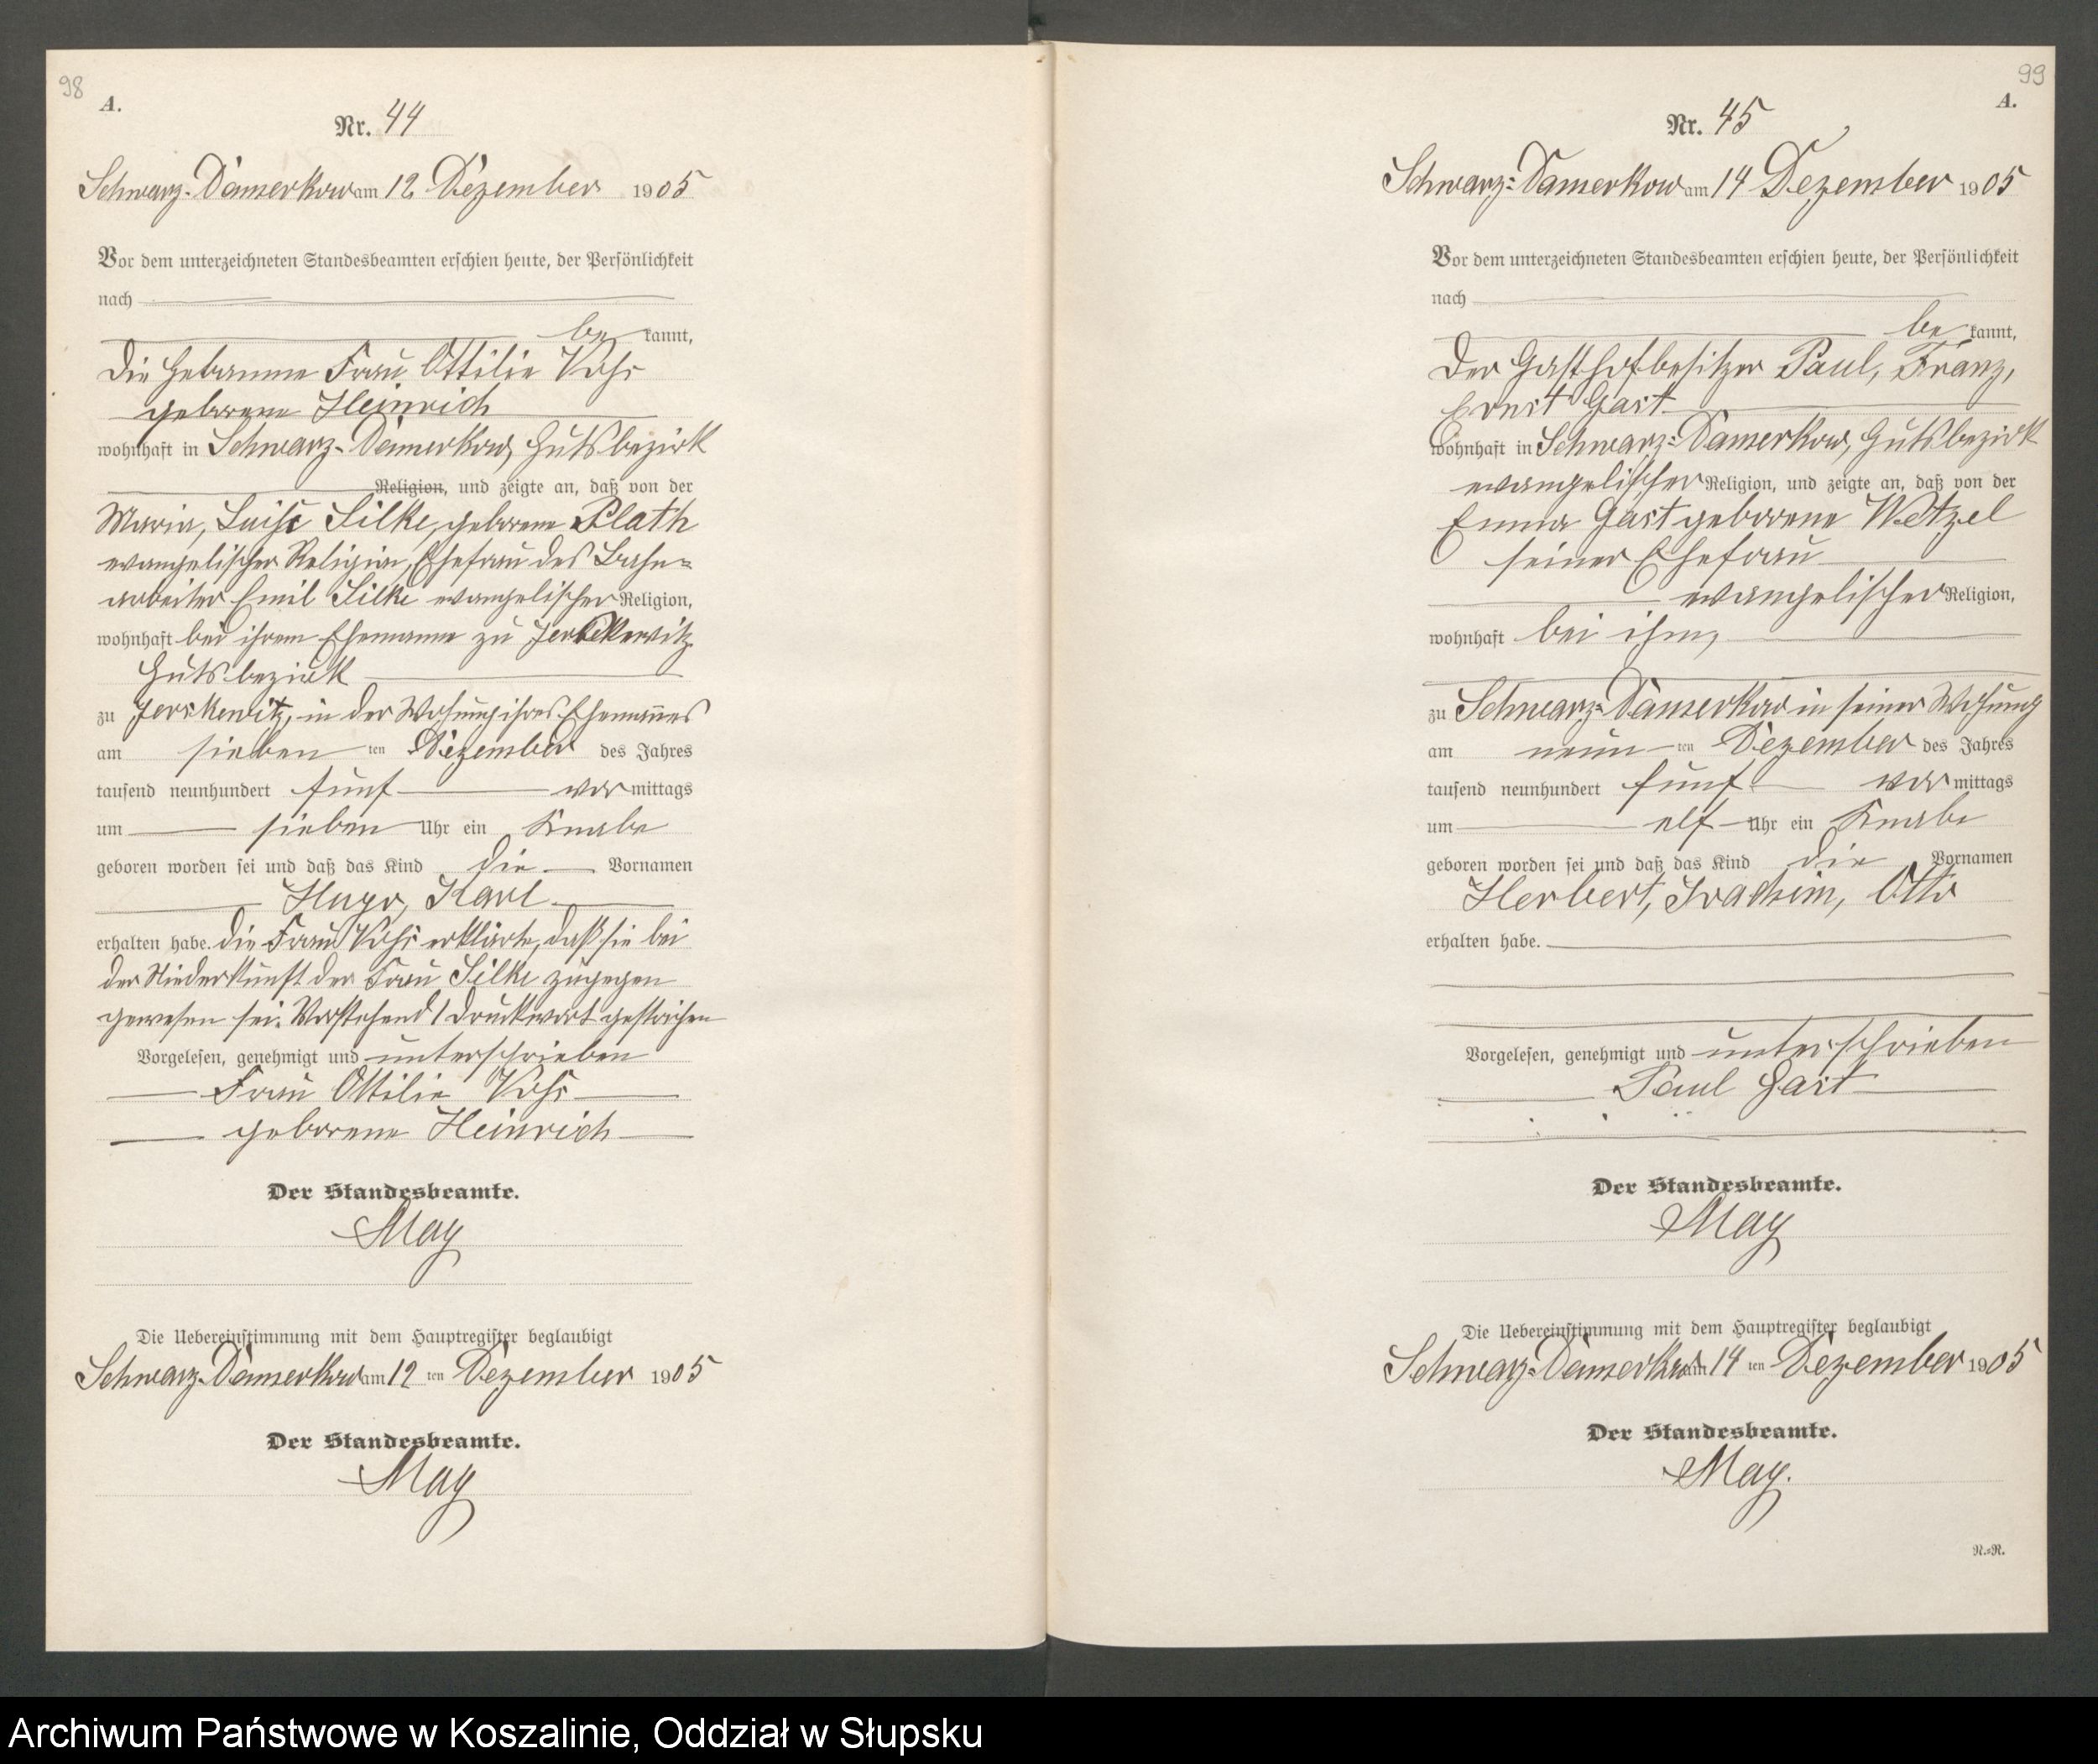 98
A.
Nr. 44
Schwarz-Damerkow am 12 Dezember 1905
Vor dem unterzeichneten Standesbeamten erschien heute, der Persönlichkeit
nach
be kannt,
die Hebamme Frau Ottilie Voß
geborene Heinrich
wohnhaft in Schwarz-Damerkow, Gutsbezirk
Religion, und zeigte an, daß von der
Maria, Luise Silke, geborene Plath
evangelischer Religion, Ehefrau des Bahn=
arbeiter Emil Silke evangelischer Religion,
wohnhaft bei ihrem Ehemanne zu Jerskewitz
Gutsbezirk
zu Jerskewitz, in der Wohnung ihres Ehemannes
am sieben ten Dezember des Jahres
tausend neunhundert fünf vor mittags
um sieben Uhr ein Knabe
geboren worden sei und daß das Kind die Vornamen
Hugo, Karl
erhalten habe. Die Frau Voß erklärte, daß sie bei
der Niederkunft der Frau Silke zugegen
gewesen sei. Vorstehend 1 Druckwort gestrichen
Vorgelesen, genehmigt und unterschrieben
Frau Ottilie Voß
geborene Heinrich
Der Standesbeamte.
May
Die Uebereinstimmung mit dem Hauptregister beglaubigt
Schwarz-Damerkow am 12 ten Dezember 1905
Der Standesbeamte.
May
99
A.
Nr. 45
Schwarz=Damerkow am 14 Dezember 1905
Vor dem unterzeichneten Standesbeamten erschien heute, der Persönlichkeit
nach
be kannt,
der Gasthofbesitzer Paul, Franz,
Ernst Gast
wohnhaft in Schwarz=Damerkow, Gutsbezirk
evangelischer Religion, und zeigte an, daß von der
Emma Gast geborene Wetzel
seiner Ehefrau
evangelischer Religion,
wohnhaft bei ihm,
zu Schwarz=Damerkow in seiner Wohnung
am neun ten Dezember des Jahres
tausend neunhundert fünf vor mittags
um elf Uhr ein Knabe
geboren worden sei und daß das Kind die Vornamen
Herbert, Joachim, Otto
erhalten habe.
Vorgelesen, genehmigt und unterschrieben
Paul Gast
Der Standesbeamte.
May
Die Uebereinstimmung mit dem Hauptregister beglaubigt
Schwarz=Damerkow am 14 ten Dezember 1905
Der Standesbeamte.
May.
N.=N.
Archiwum Państwowe w Koszalinie, Oddział w Słupsku